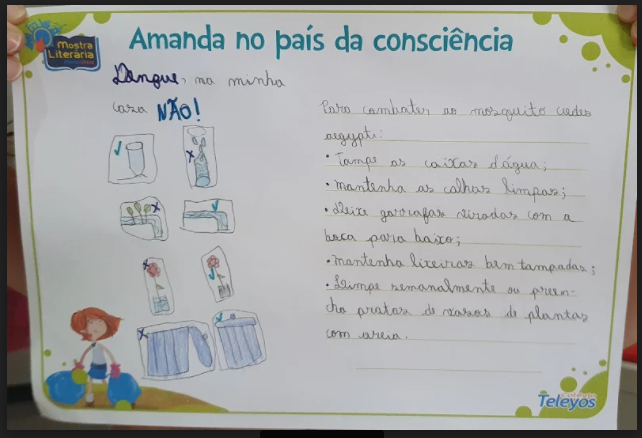 Mostra
Literária
Amanda no país da consciência
Dengue, na minha
casa NÃO!
Para combater ao mosquito aedes
aegypti:
• Tampe as caixas d'água;
• mantenha as calhas limpas;
• Deixe garrafas viradas com a
boca para baixo;
• mantenha lixeiras bem tampadas;
• Limpe semanalmente ou preen-
cha pratos de vasos de plantas
com areia.
Teleyos